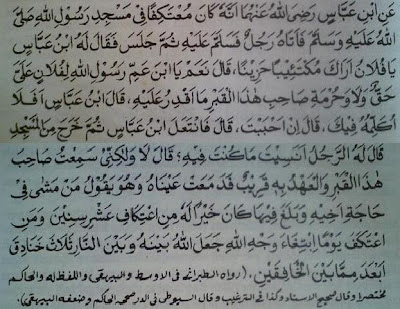 عَنِ ابْنِ عَبَّاسٍ رَضِيَ اللهُ عَنْهُمَا اَنَّهٗ كَانَ مُعْتَكِفًا فِيْ مَسْجِدِ رَسُوْلِ اللهِ صَلَّى
اللهُ عَلَيْهِ وَسَلَّمَ فَاَتَاهُ رَجُلٌ فَسَلَّمَ عَلَيْهِ ثُمَّ جَلَسَ فَقَالَ لَهُ ابْنُ عَبَّاسٍ
يَا فُلَانُ اَرَاكَ مُكْتَئِبًا حَزِيْنًا، قَالَ نَعَمْ يَا ابْنَ عَمِّ رَسُوْلِ اللهِ لِفُلَانٍ عَلَيَّ
حَقٌّ وَلَا وَحُرْمَةِ صَاحِبِ هٰذَا الْقَبْرِ مَا اَقْدِرُ عَلَيْهِ، قَالَ ابْنُ عَبَّاسٍ اَفَلَا
اُكَلِّمُهٗ فِيْكَ، قَالَ اِنْ اَحْبَبْتَ، قَالَ فَانْتَعَلَ ابْنُ عَبَّاسٍ ثُمَّ خَرَجَ مِنَ الْمَسْجِدِ
قَالَ لَهُ الرَّجُلُ اَنَسِيْتَ مَا كُنْتَ فِيْهِ؟ قَالَ لَا وَلٰكِنِّيْ سَمِعْتُ صَاحِبَ
هٰذَا الْقَبْرِ وَالْعَهْدُ بِهٖ قَرِيْبٌ فَدَمَعَتْ عَيْنَاهُ وَهُوَ يَقُوْلُ مَنْ مَشٰى فِيْ
حَاجَةِ اَخِيْهِ وَبَلَغَ فِيْهَا كَانَ خَيْرًا لَّهٗ مِنِ اعْتِكَافِ عَشْرِ سِنِيْنَ وَمَنِ
اعْتَكَفَ يَوْمًا اِبْتِغَاءَ وَجْهِ اللهِ جَعَلَ اللهُ بَيْنَهٗ وَبَيْنَ النَّارِ ثَلَاثَ خَنَادِقَ
اَبْعَدَ مِمَّا بَيْنَ الْخَافِقَيْنِ، (رواه الطبرانى فى الاوسط والبيهقى واللفظ له والحاكم
مختصرا وقال صحيح الاسناد وكذا فى الترغيب وقال السيوطى فى الدر صححه الحاكم وضعفه البيهقى)